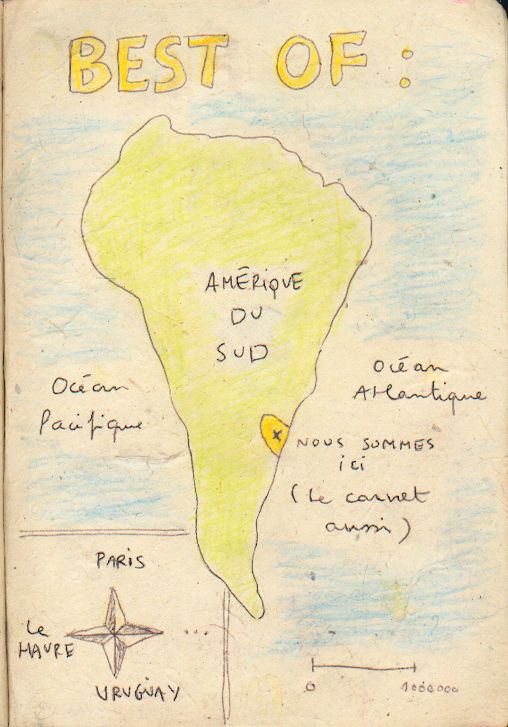 BEST OF :
AMÉRIQUE
DU
SUD
Océan
Pacifique
Océan
Atlantique
NOUS SOMMES
ici
(Le carnet
aussi)
PARIS
Le
HAVRE
...
URUGUAY
0 1000000